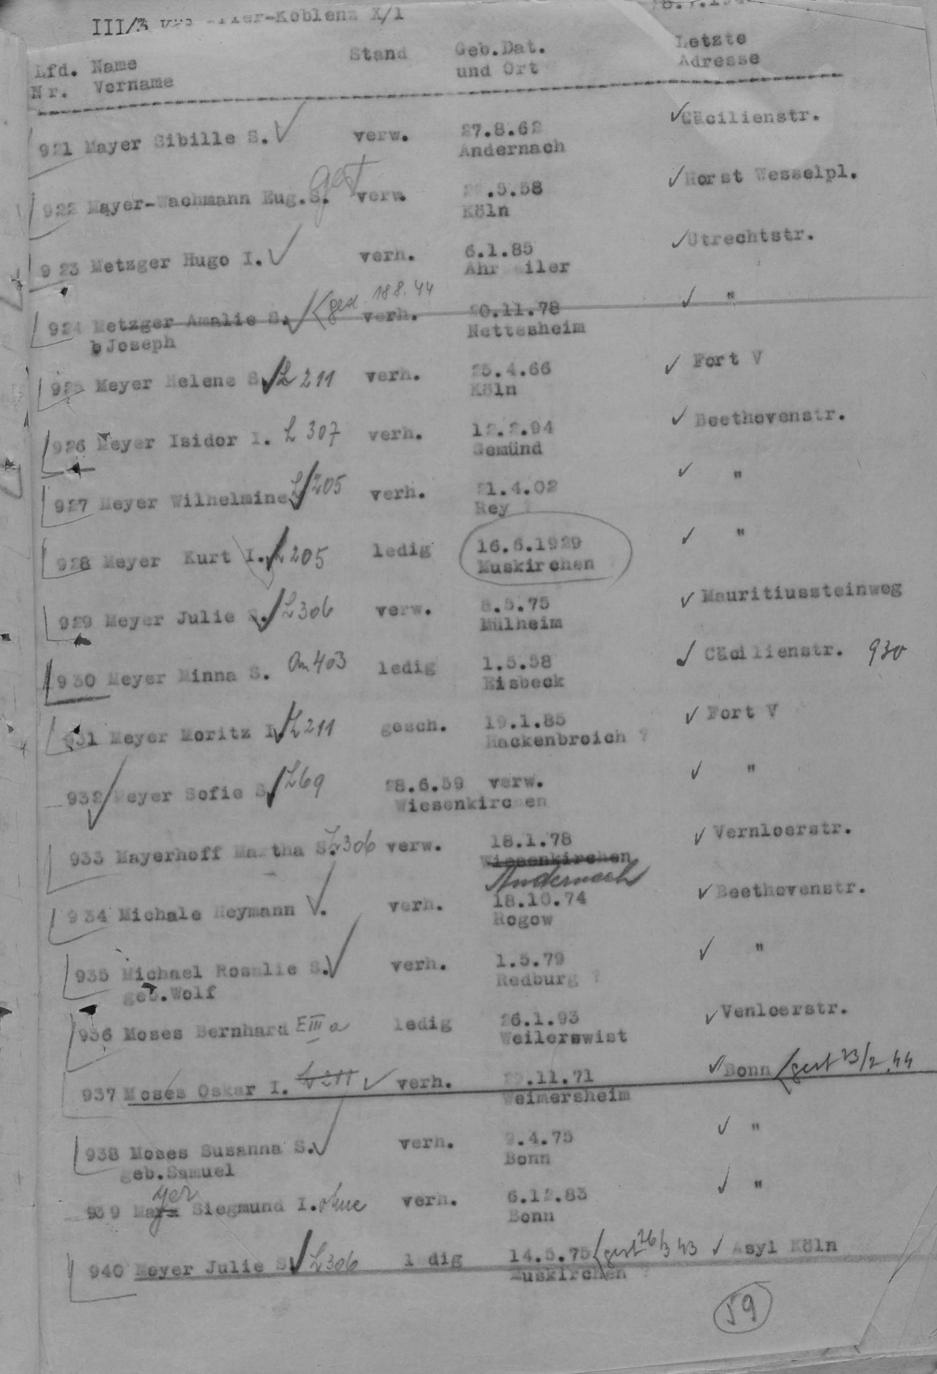 III/3 Trier-Koblenz X/1
Lfd. Name Stand Geb.Dat. Letzte
Nr. Vorname und Ort Adresse
921 Mayer Sibille S. verw. 27.8.62 Cäcilienstr.
Andernach
922 Mayer-Wachmann Eug.S. gest verw. .5.58 Horst Wesselpl.
Köln
923 Metzger Hugo I. verh. 6.1.85 Utrechtstr.
Ahrweiler
924 Metzger Amalie S. gest. 18 8. 44 verh. 20.11.78 "
b Joseph Nettesheim
925 Meyer Helene S. L 211 verh. 25.4.66 Fort V
Köln
926 Meyer Isidor I. L 307 verh. 12.2.94 Beethovenstr.
Gemünd
927 Meyer Wilhelmine L 205 verh. 21.4.02 "
Rey ?
928 Meyer Kurt I. L 205 ledig 16.6.1929 "
Muskirchen
929 Meyer Julie S. L 306 verw. 8.5.75 Mauritiussteinweg
Mülheim
930 Meyer Minna S. Am 403 ledig 1.5.58 Cäcilienstr. 930
Eisbeck
931 Meyer Moritz I. L 211 gesch. 19.1.85 Fort V
Hackenbroich ?
932 Meyer Sofie S. L 69 28.6.59 verw. "
Wiesenkirchen
933 Mayerhoff Martha S. L 306 verw. 18.1.78 Vernloerstr.
Wiesenkirchen
Andernach
934 Michale Heymann verh. 18.10.74 Beethovenstr.
Rogow
935 Michael Rosalie S. verh. 1.5.79 "
geb.Wolf Redburg ?
936 Moses Bernhard E III a ledig 26.1.93 Venloerstr.
Weilerswist
937 Moses Oskar I. L 211 verh. .11.71 Bonn gest 23/2. 44
Weimersheim
938 Moses Susanna S. verh. 9.4.75 "
geb.Samuel Bonn
yer
939 Marx Siegmund I. ohne verh. 6.12.83 "
Bonn
940 Meyer Julie S. L 306 ledig 14.5.75 gest 26/3 43 Asyl Köln
Muskirchen ?
59